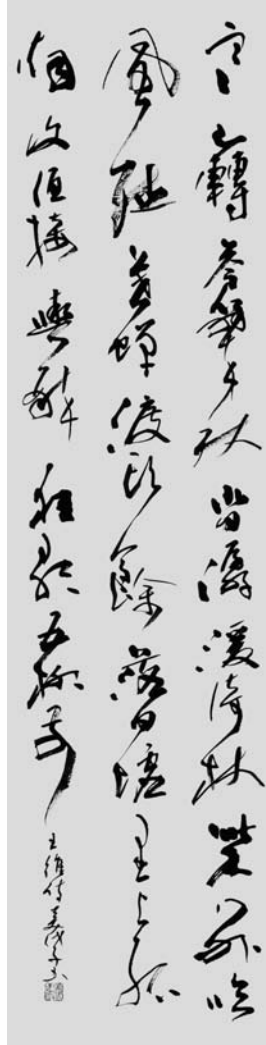 寒山轉蒼翠秋水日潺湲倚杖柴門外臨
風聽暮蟬渡頭餘落日墟里上孤
煙復值接輿醉狂歌五柳前
王維詩